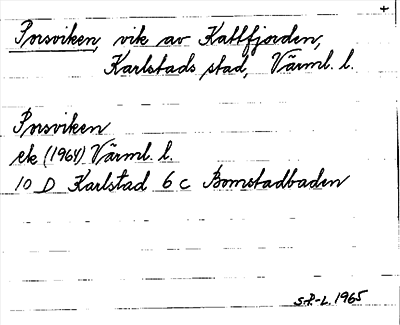 +
Porsviken, vik av Kattfjorden,
Karlstads stad, Värml. l.
Porsviken
ek (1964) Värml. l.
10 D Karlstad 6 c Bomstadbaden
S.P-L. 1965